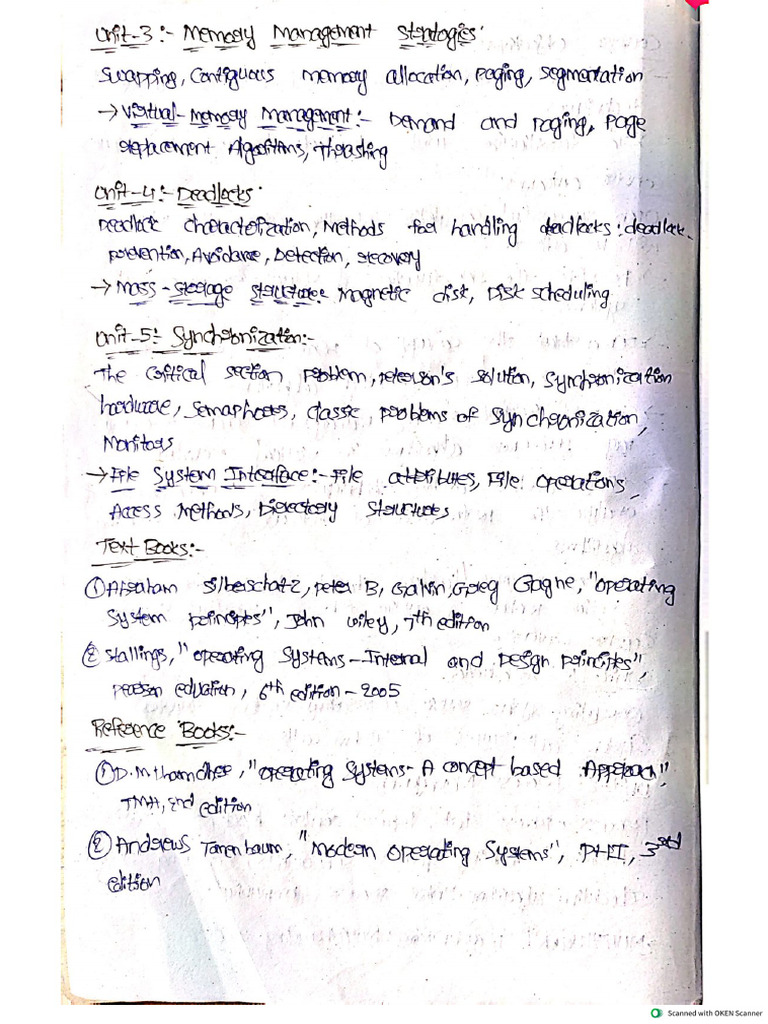 Unit-3:- Memory Management Strategies:
Swapping, Contiguous memory allocation, paging, segmentation
→ Virtual-Memory Management:- Demand and paging, page
replacement Algorithms, Thrashing
Unit-4:- Deadlocks:
Deadlock characterization, Methods for handling deadlocks: deadlock
prevention, Avoidance, Detection, recovery
→ Mass-Storage structure: magnetic disk, Disk scheduling
Unit-5: Synchronization:-
The critical section problem, peterson's solution, Synchronization
hardware, semaphores, classic problems of synchronization,
Monitors
→ File System Interface:- File attributes, File operations,
Access Methods, Directory structures
Text Books:-
① Abraham Silberschatz, peter B, Galvin, Greg Gagne, "operating
System principles", John wiley, 7th edition
② Stallings, "operating Systems-Internal and Design principles",
pearson eduation, 6th edition - 2005
Reference Books:-
① D.M.thamdhee, "operating systems- A concept based Approach",
TMH, 2nd edition
② Andrews Tanenbaum, "Modern operating Systems", PHI, 3rd
edition
Scanned with OKEN Scanner